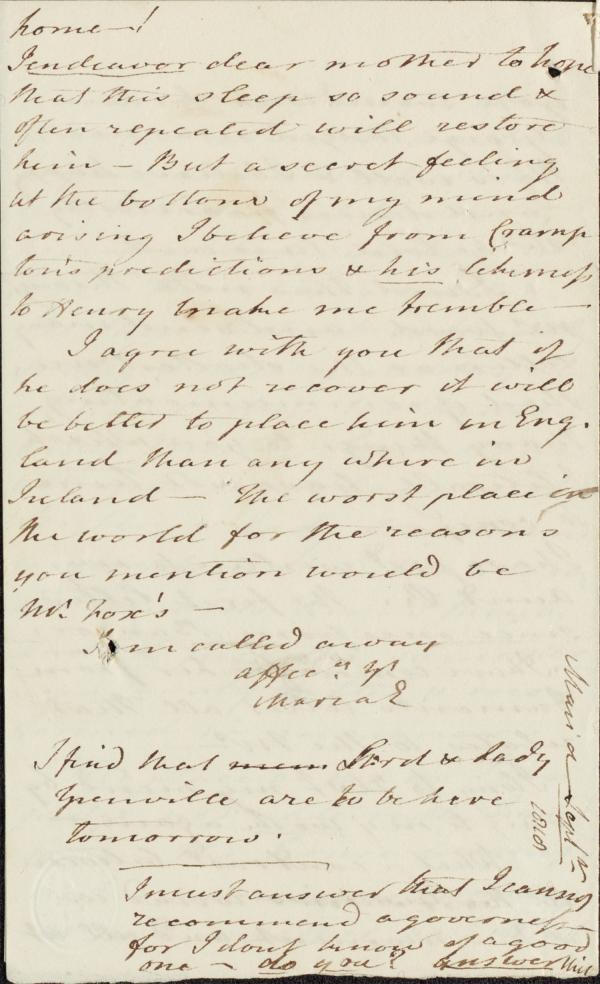 home—!
I endeavor dear mother to hope
that this sleep so sound &
often repeated will restore
him — But a secret feeling
at the bottom of my mind
arising I believe from Cramp
ton's predictions & his likeness
to Henry make me tremble —
I agree with you that if
he does not recover it will
be better to place him in Eng.
land than any where in
Ireland — The worst place in
the world for the reasons
you mention would be
Mr. Fox's —
I am called away
affec.ly yr
Maria E
I find that Lord & Lady
Grenville are to be here
tomorrow.
I must answer that I cannot
recommend a governess
for I dont know of a good
one — do you? answer this
Maria Sept.r
1818